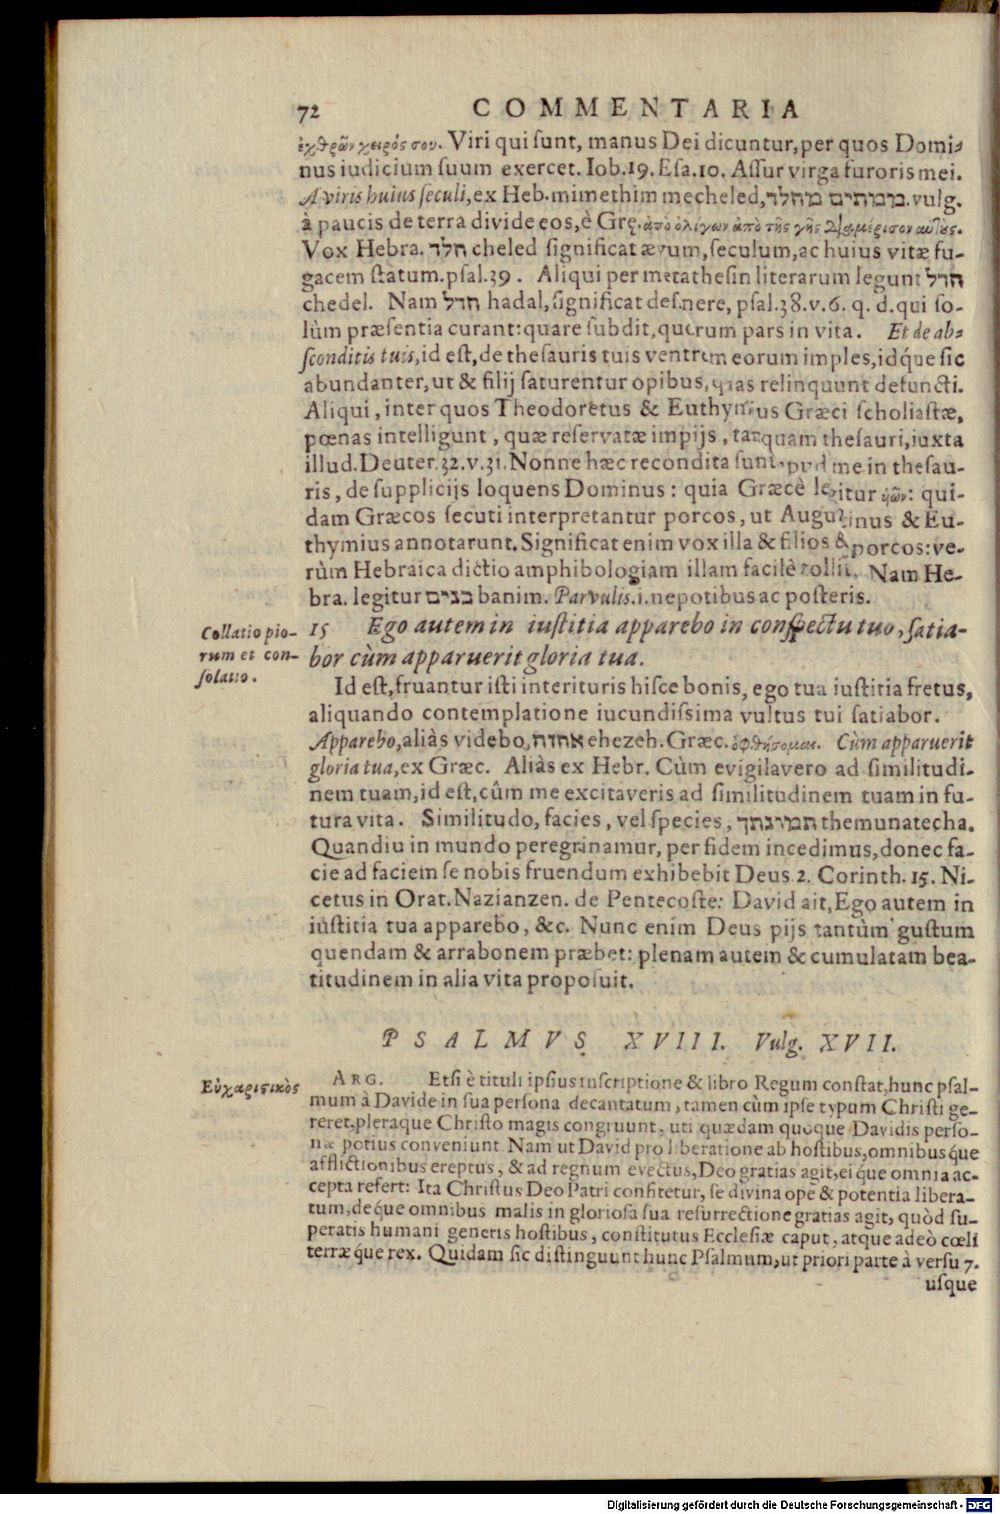 72 COMMENTARIA
ἐχθρῶν χειρός σου. Viri qui ſunt, manus Dei dicuntur, per quos Domi-
nus iudicium ſuum exercet. Iob. 19. Eſa. 10. Aſſur virga furoris mei.
A viris huius ſeculi, ex Heb. mimethim mecheled, ממתים מחלד. vulg.
à paucis de terra divide eos, è Grę. ἀπὸ ὀλίγων ἀπὸ τῆς γῆς διαμέρισον αὐτὰς.
Vox Hebra. חלד cheled ſignificat ævum, ſeculum, ac huius vitæ fu-
gacem ſtatum. pſal. 39. Aliqui per metatheſin literarum legunt חדל
chedel. Nam חדל hadal, ſignificat deſinere, pſal. 38. v. 6. q. d. qui ſo-
lùm præſentia curant: quare ſubdit, quorum pars in vita. Et de ab-
ſconditis tuis, id eſt, de theſauris tuis ventrem eorum imples, idq́ue ſic
abundanter, ut & filij ſaturentur opibus, quas relinquunt defuncti.
Aliqui, inter quos Theodoretus & Euthymius Græci ſcholiaſtæ,
pœnas intelligunt, quæ reſervatæ impijs, tanquam theſauri, iuxta
illud. Deuter. 32. v. 31. Nonne hæc recondita ſunt apud me in theſau-
ris, de ſupplicijs loquens Dominus: quia Græcè legitur ὑῶν: qui-
dam Græcos ſecuti interpretantur porcos, ut Auguſtinus & Eu-
thymius annotarunt. Significat enim vox illa & filios & porcos: ve-
rùm Hebraica dictio amphibologiam illam facilè tollit. Nam He-
bra. legitur בנים banim. Parvulis. i. nepotibus ac poſteris.
Collatio pio-
rum et con-
ſolatio.
15 Ego autem in iuſtitia apparebo in conſpectu tuo, ſatia-
bor cùm apparuerit gloria tua.
Id eſt, fruantur iſti interituris hiſce bonis, ego tua iuſtitia fretus,
aliquando contemplatione iucundiſsima vultus tui ſatiabor.
Apparebo, aliàs videbo, אחזה ehezeh. Græc. ὀφθήσομαι. Cùm apparuerit
gloria tua, ex Græc. Aliàs ex Hebr. Cùm evigilavero ad ſimilitudi-
nem tuam, id eſt, cûm me excitaveris ad ſimilitudinem tuam in fu-
tura vita. Similitudo, facies, vel ſpecies, תמונתך themunatecha.
Quandiu in mundo peregrinamur, per fidem incedimus, donec fa-
cie ad faciem ſe nobis fruendum exhibebit Deus 2. Corinth. 15. Ni-
cetus in Orat. Nazianzen. de Pentecoſte: David ait, Ego autem in
iuſtitia tua apparebo, &c. Nunc enim Deus pijs tantùm guſtum
quendam & arrabonem præbet: plenam autem & cumulatam bea-
titudinem in alia vita propoſuit.
PSALMVS XVIII. Vulg. XVII.
Εὐχαριστικὸς
ARG. Etſi è tituli ipſius inſcriptione & libro Regum conſtat, hunc pſal-
mum à Davide in ſua perſona decantatum, tamen cùm ipſe typum Chriſti ge-
reret, pleraque Chriſto magis congruunt, uti quædam quoque Davidis perſo-
næ potius conveniunt. Nam ut David pro liberatione ab hoſtibus, omnibusq́ue
afflictionibus ereptus, & ad regnum evectus, Deo gratias agit, eiq́ue omnia ac-
cepta refert: Ita Chriſtus Deo Patri confitetur, ſe divina ope & potentia libera-
tum, deque omnibus malis in glorioſa ſua reſurrectione gratias agit, quòd ſu-
peratis humani generis hoſtibus, conſtitutus Eccleſiæ caput, atque adeò cœli
terræque rex. Quidam ſic diſtinguunt hunc Pſalmum, ut priori parte à verſu 7.
uſque
Digitalisierung gefördert durch die Deutsche Forschungsgemeinschaft - DFG